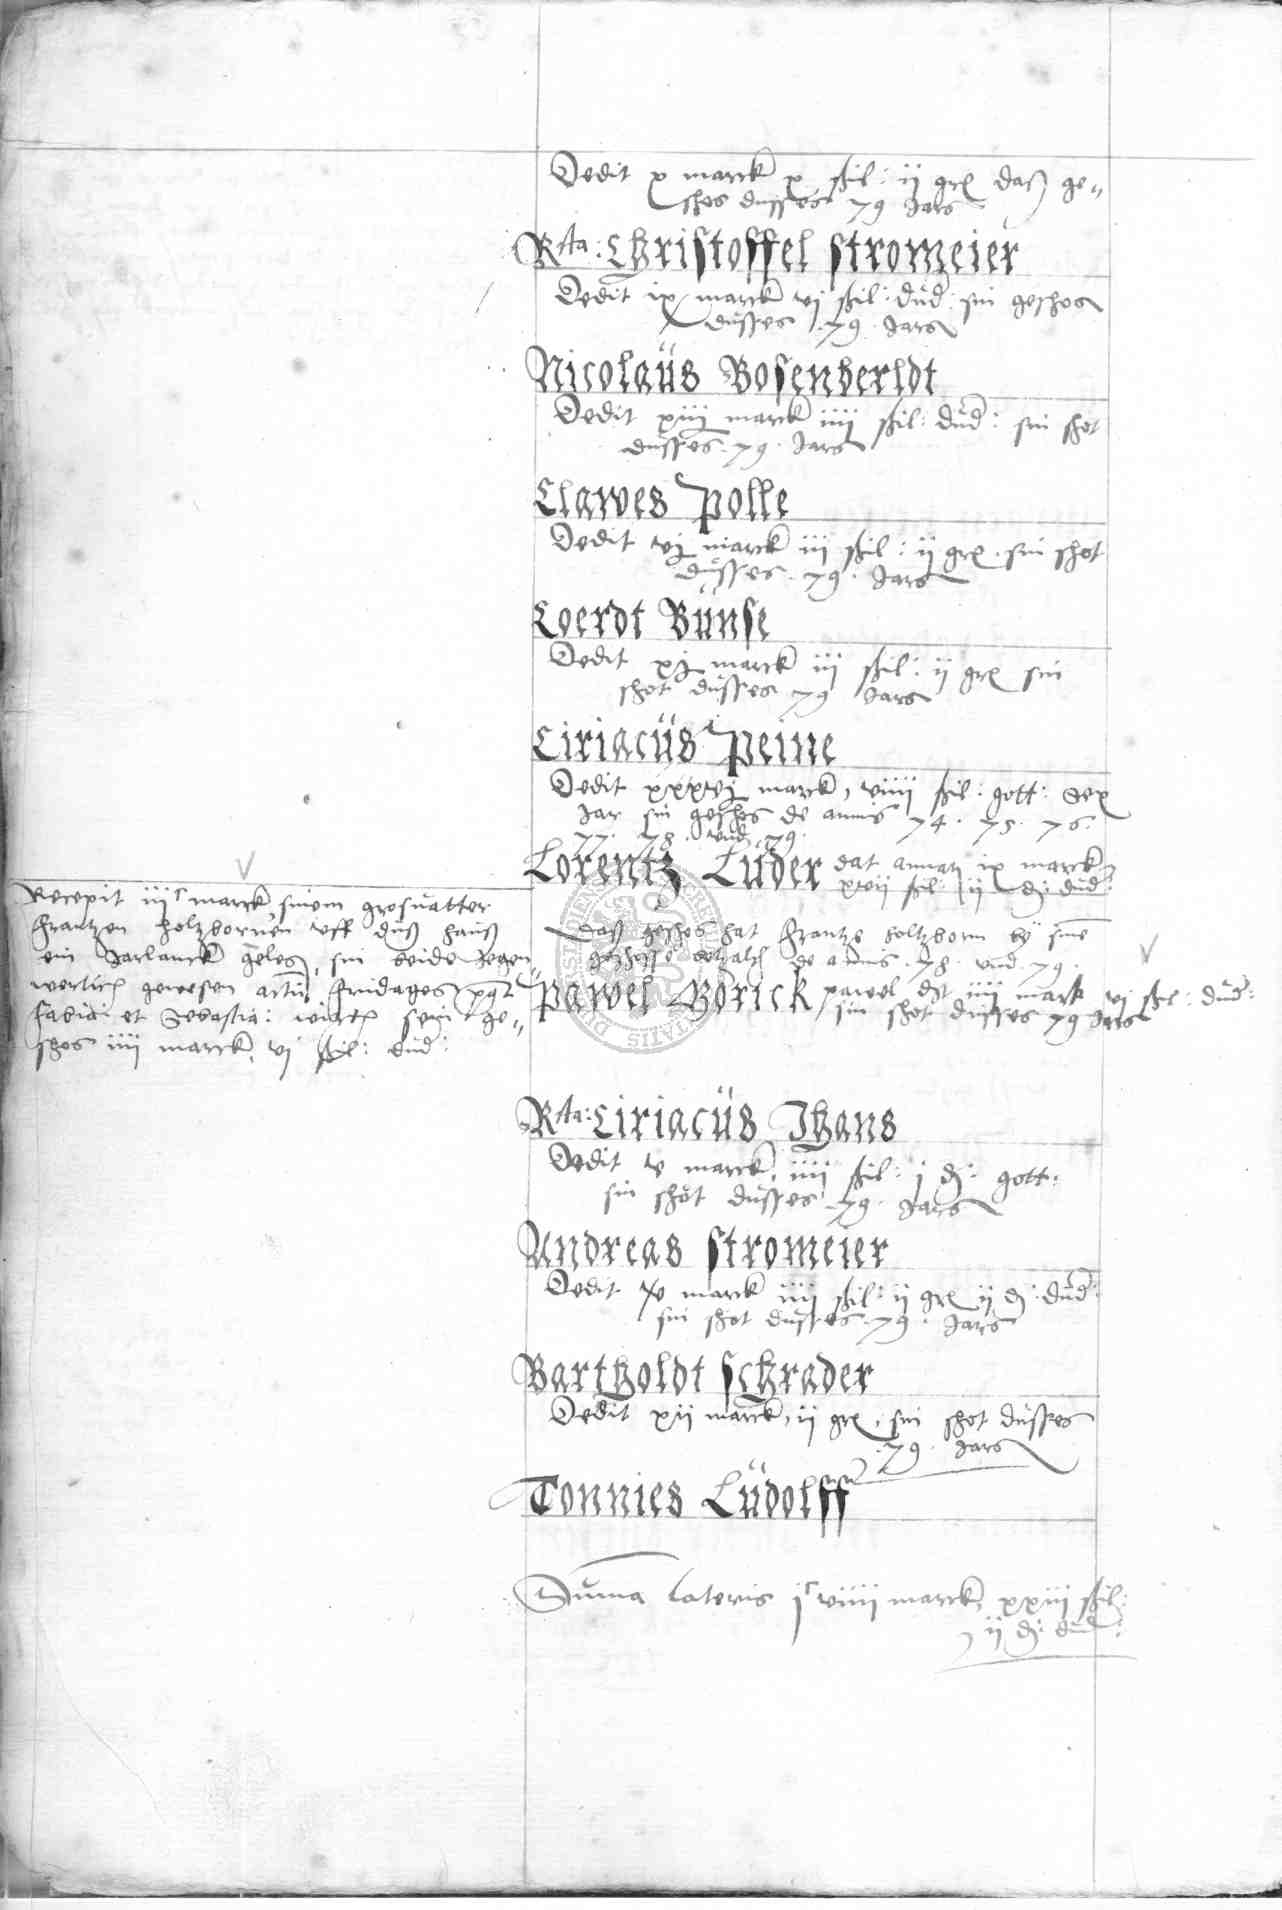 Dedit x marck x ßkil: ij gr daß ge„
schos dusses 79 Jars
Rta: Christoffel Stromeier
Dedit ix marck vj ßkil: dud: sin geschos
dusses .79. Jars
Nicolaüs Bosenberldt
Dedit xiij marck iiij ßkil: dud: sin schot
dusses .79. Jars
Clawes Polle
Dedit vj marck iij ßkil: ij gr. sin schot
düsses .79. Jars
Coerdt Bünse
Dedit xj marck iij ßkil: ij gr sin
schot düsses 79 Jars
Ciriacüs Peine
Dedit xxxvj marck, viiij ßkil: gott: Sex
Jar sin geschos de annis 74. 75. 76.
77. 78. vnd 79.
Lorentz Lüder dat annatz ix marck
xvij ßkil ij d: dud:
Recepit iiijc marck, sinem grosuatter
Frantzen Holtzbornen vff düß hauß
ein Jarlanck geleg, sin beide Jegen„
wertich gewesen actu Fridages post
Fabiani et Sebastia: wirtt sein ge„
schos iiij marck, vj ßkil: dud:
Daß geschos hat Frantze holtzborn by sinē
geschosse betzalt de annis .78. vnd .79.
Pawel Görick pawel dt iiij marck vj ßkil: düd:
sin schot düsses 79 Jars
Rta: Ciriacüs Jhans
Dedit v marck, iiij ßkil: j d: gott:
sin schot düsses .79. Jars
Andreas Stromeier
Dedit xv marck iiij ßkil: ij gr ij d: düd:
sin schot düsses .79. Jars
Bartholdt Schrader
Dedit xij marck, ij gr, sin schot düsses
.79. Jars
Tonnies Lüdolff
Suma lateris jc viiij marck, xxiij ßkil:
ij d: düd: